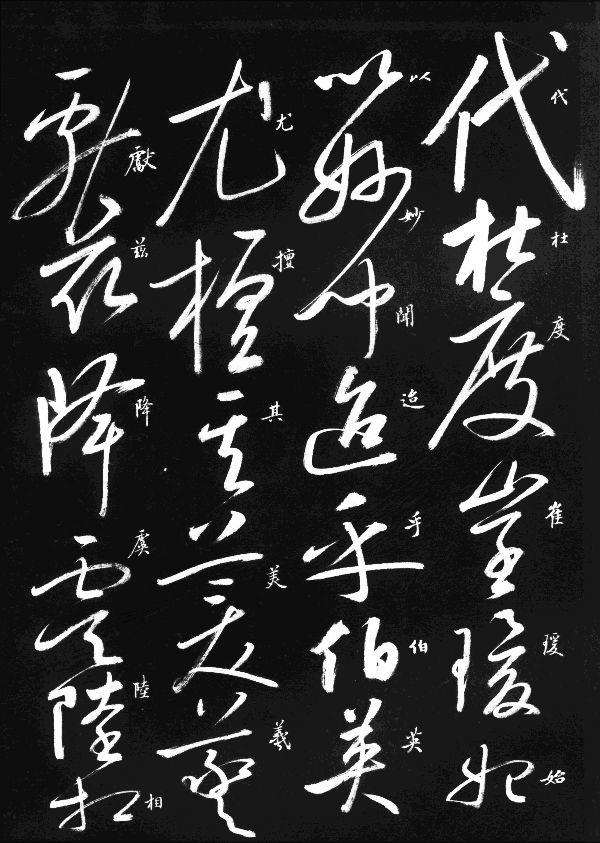 代杜度崔瑗始
以妙聞迨乎伯英
尤擅其美羲
獻茲降虞陸相